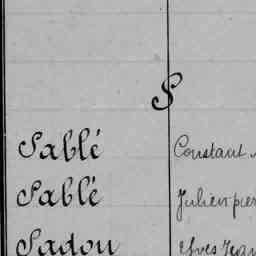 S
Sablé Constant
Sablé Julien pier
Sadou Yves Jean